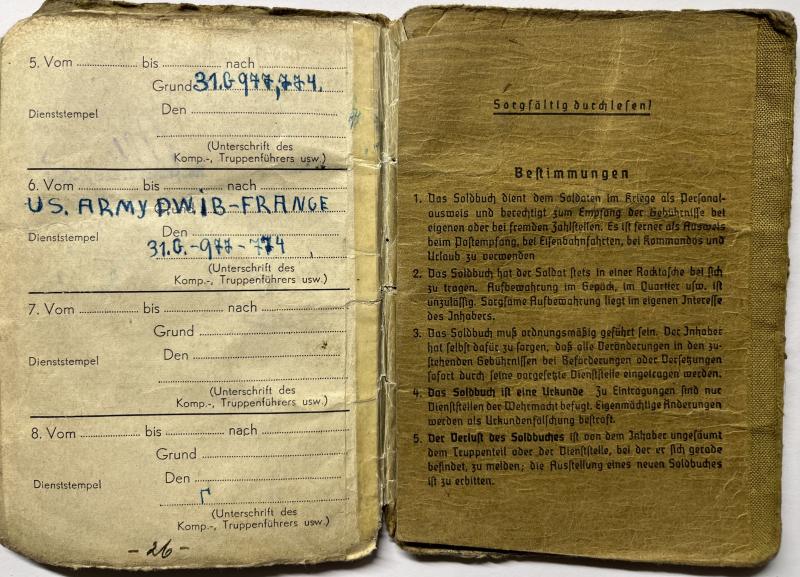 5. Vom .................. bis .................. nach ..................
Grund 31.G 977,774.
Dienststempel
Den ..................
(Unterschrift des
Komp.-, Truppenführers usw.)
6. Vom .................. bis .................. nach ..................
US. ARMY PWIB-FRANCE
Dienststempel
Den ..................
31.G.-977-774
(Unterschrift des
Komp.-, Truppenführers usw.)
7. Vom .................. bis .................. nach ..................
Grund ..................
Dienststempel
Den ..................
(Unterschrift des
Komp.-, Truppenführers usw.)
8. Vom .................. bis .................. nach ..................
Grund ..................
Dienststempel
Den ..................
(Unterschrift des
Komp.-, Truppenführers usw.)
- 26 -
Sorgfältig durchlesen!
Bestimmungen
1. Das Soldbuch dient dem Soldaten im Kriege als Personal-
ausweis und berechtigt zum Empfang der Gebührnisse bei
eigenen oder bei fremden Zahlstellen. Es ist ferner als Ausweis
beim Postempfang, bei Eisenbahnfahrten, bei Kommandos und
Urlaub zu verwenden
2. Das Soldbuch hat der Soldat stets in einer Rocktasche bei sich
zu tragen. Aufbewahrung im Gepäck, im Quartier usw. ist
unzulässig. Sorgsame Aufbewahrung liegt im eigenen Interesse
des Inhabers.
3. Das Soldbuch muß ordnungsmäßig geführt sein. Der Inhaber
hat selbst dafür zu sorgen, daß alle Veränderungen in den zu-
stehenden Gebührnissen bei Beförderungen oder Versetzungen
sofort durch seine vorgesetzte Dienststelle eingetragen werden.
4. Das Soldbuch ist eine Urkunde Zu Eintragungen sind nur
Dienststellen der Wehrmacht befugt. Eigenmächtige Änderungen
werden als Urkundenfälschung bestraft.
5. Der Verlust des Soldbuches ist von dem Inhaber ungesäumt
dem Truppenteil oder der Dienststelle, bei der er sich gerade
befindet, zu melden; die Ausstellung eines neuen Soldbuches
ist zu erbitten.